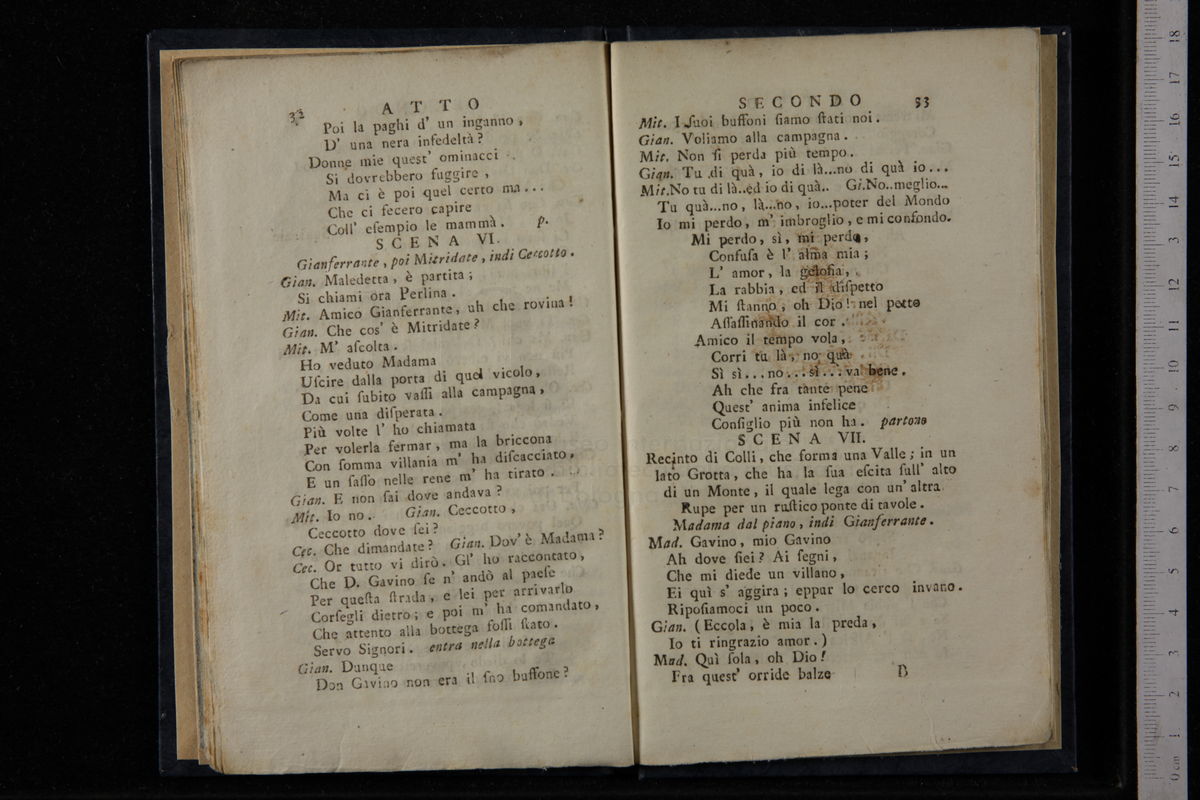 32
A T T O
Poi la paghi d' un inganno,
D' una nera infedeltà?
Donne mie quest' ominacci
Si dovrebbero fuggire,
Ma ci è poi quel certo ma...
Che ci fecero capire
Coll' eſempio le mammà. p.
S C E N A VI.
Gianferrante, poi Mitridate, indi Ceccotto.
Gian. Maledetta, è partita;
Si chiami ora Perlina.
Mit. Amico Gianferrante, uh che rovina!
Gian. Che cos' è Mitridate?
Mit. M' aſcolta.
Ho veduto Madama
Uſcire dalla porta di quel vicolo,
Da cui ſubito vaſſi alla campagna,
Come una diſperata.
Più volte l' ho chiamata
Per volerla fermar, ma la briccona
Con ſomma villania m' ha diſcacciato,
E un ſaſſo nelle rene m' ha tirato.
Gian. E non ſai dove andava?
Mit. Io no. Gian. Ceccotto,
Ceccotto dove ſei?
Cec. Che dimandate? Gian. Dov' è Madama?
Cec. Or tutto vi dirò. Gl' ho raccontato,
Che D. Gavino ſe n' andò al paeſe
Per queſta ſtrada, e lei per arrivarlo
Corſegli dietro; e poi m' ha comandato,
Che attento alla bottega foſſi ſtato.
Servo Signori. entra nella bottega
Gian. Dunque
Don Gavino non era il ſuo buffone?
S E C O N D O 33
Mit. I ſuoi buffoni ſiamo ſtati noi.
Gian. Voliamo alla campagna.
Mit. Non ſi perda più tempo.
Gian. Tu di quà, io di là...no di quà io...
Mit. No tu di là..ed io di quà.. Gi. No..meglio...
Tu quà...no, là...no, io...poter del Mondo
Io mi perdo, m' imbroglio, e mi confondo.
Mi perdo, sì, mi perdo,
Confuſa è l' alma mia;
L' amor, la geloſia,
La rabbia, ed il diſpetto
Mi ſtanno, oh Dio! nel petto
Aſſaſſinando il cor.
Amico il tempo vola,
Corri tu là, no quà
Sì sì...no...sì...va bene.
Ah che fra tante pene
Queſt' anima infelice
Conſiglio più non ha. partono
S C E N A VII.
Recinto di Colli, che forma una Valle; in un
lato Grotta, che ha la ſua eſcita ſull' alto
di un Monte, il quale lega con un' altra
Rupe per un ruſtico ponte di tavole.
Madama dal piano, indi Gianferrante.
Mad. Gavino, mio Gavino
Ah dove ſiei? Ai ſegni,
Che mi diede un villano,
Ei quì s' aggira; eppur lo cerco invano.
Ripoſiamoci un poco.
Gian. (Eccola, è mia la preda,
Io ti ringrazio amor.)
Mad. Quì ſola, oh Dio!
Fra queſt' orride balze
B